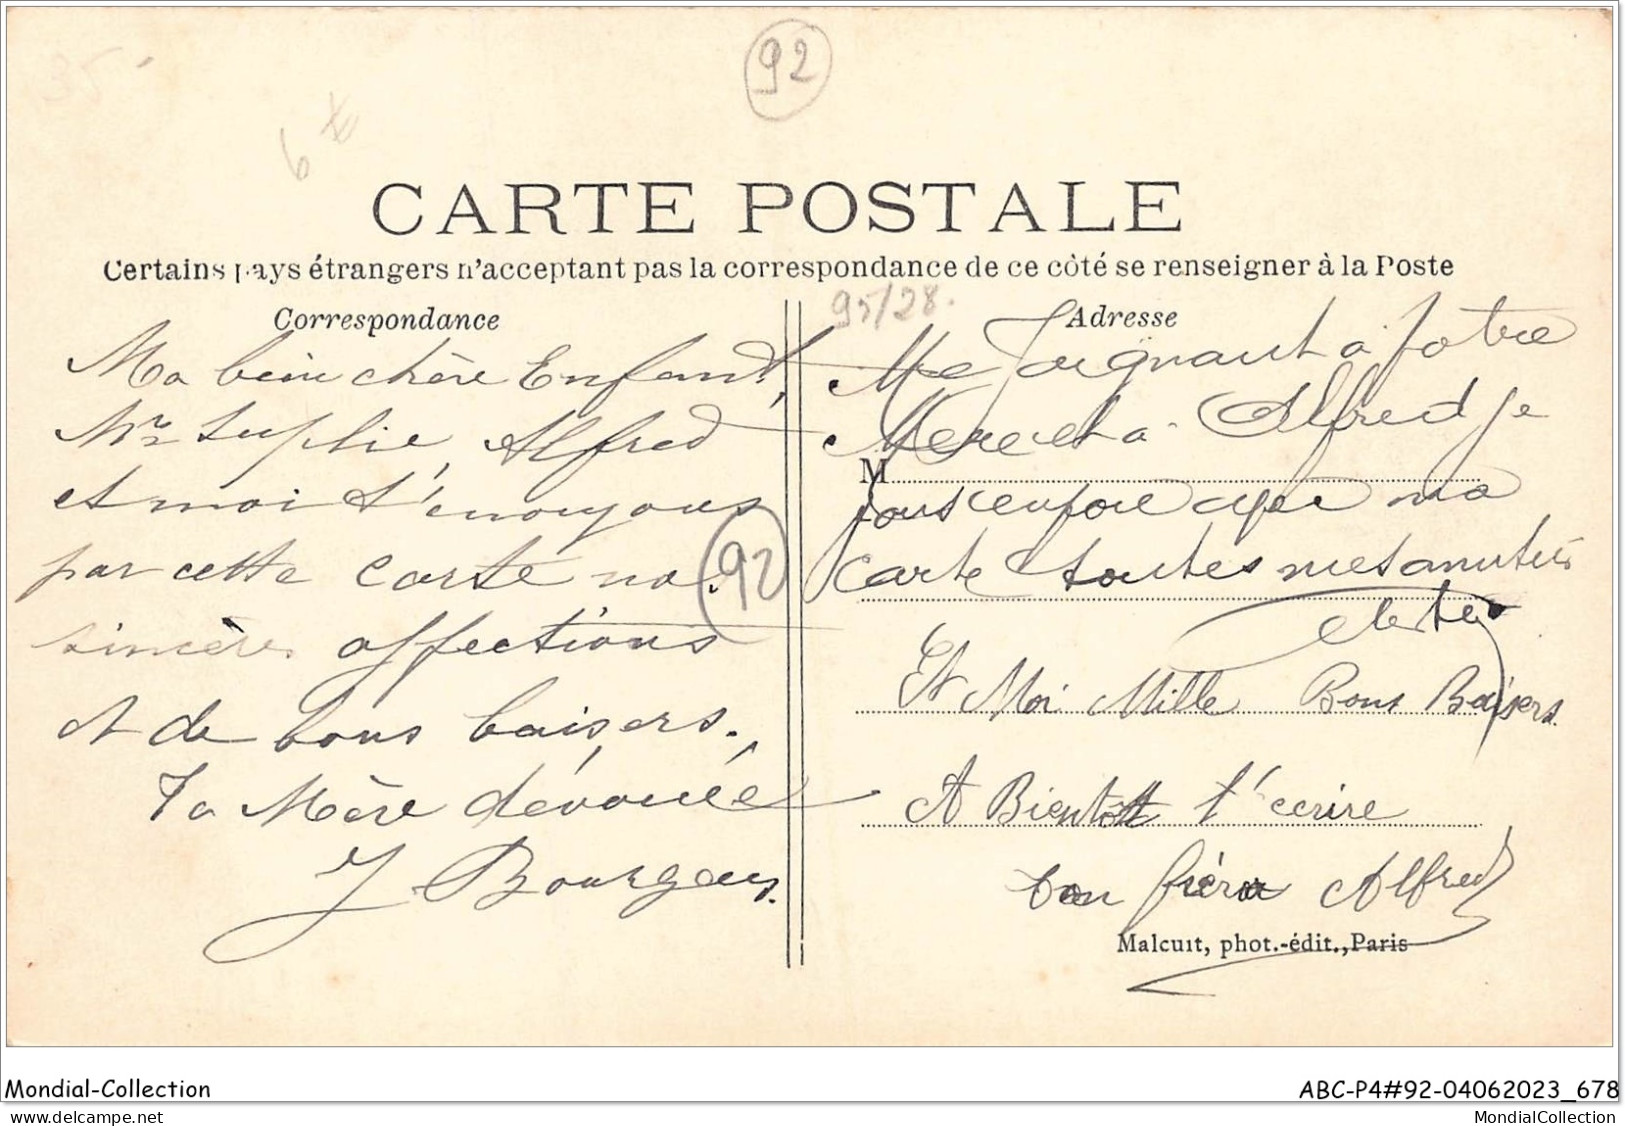 35
92
6
CARTE POSTALE
Certains pays étrangers n'acceptant pas la correspondance de ce côté se renseigner à la Poste
Correspondance
Ma bien chère Enfant,
Mr Alfred
et moi t'envoyons
par cette carte nos
92
sincères affections
et de bons baisers.
Ta Mère dévouée
J Bourgeus.
95/28.
Adresse
Me Joignant a Votre
Mere et a Alfred je
M
vous que ma
carte toutes mes amitiés
Et Moi Mille Bons Baisers.
A Bientôt t'écrire
ton frère Alfred
Malcuit, phot.-édit., Paris
Mondial-Collection
ABC-P4#92-04062023_678
delcampe.net
MondialCollection